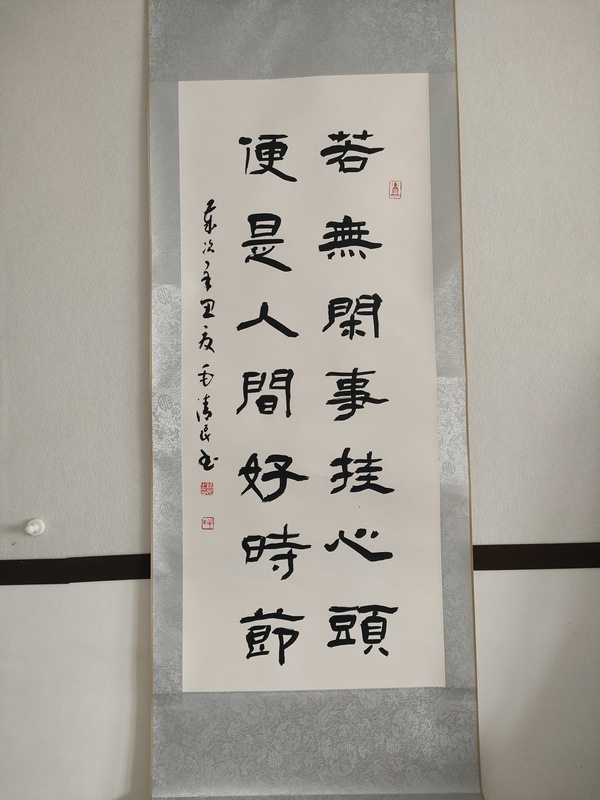 若無閑事挂心頭
便是人間好時節
歲次辛丑夏毛清民书